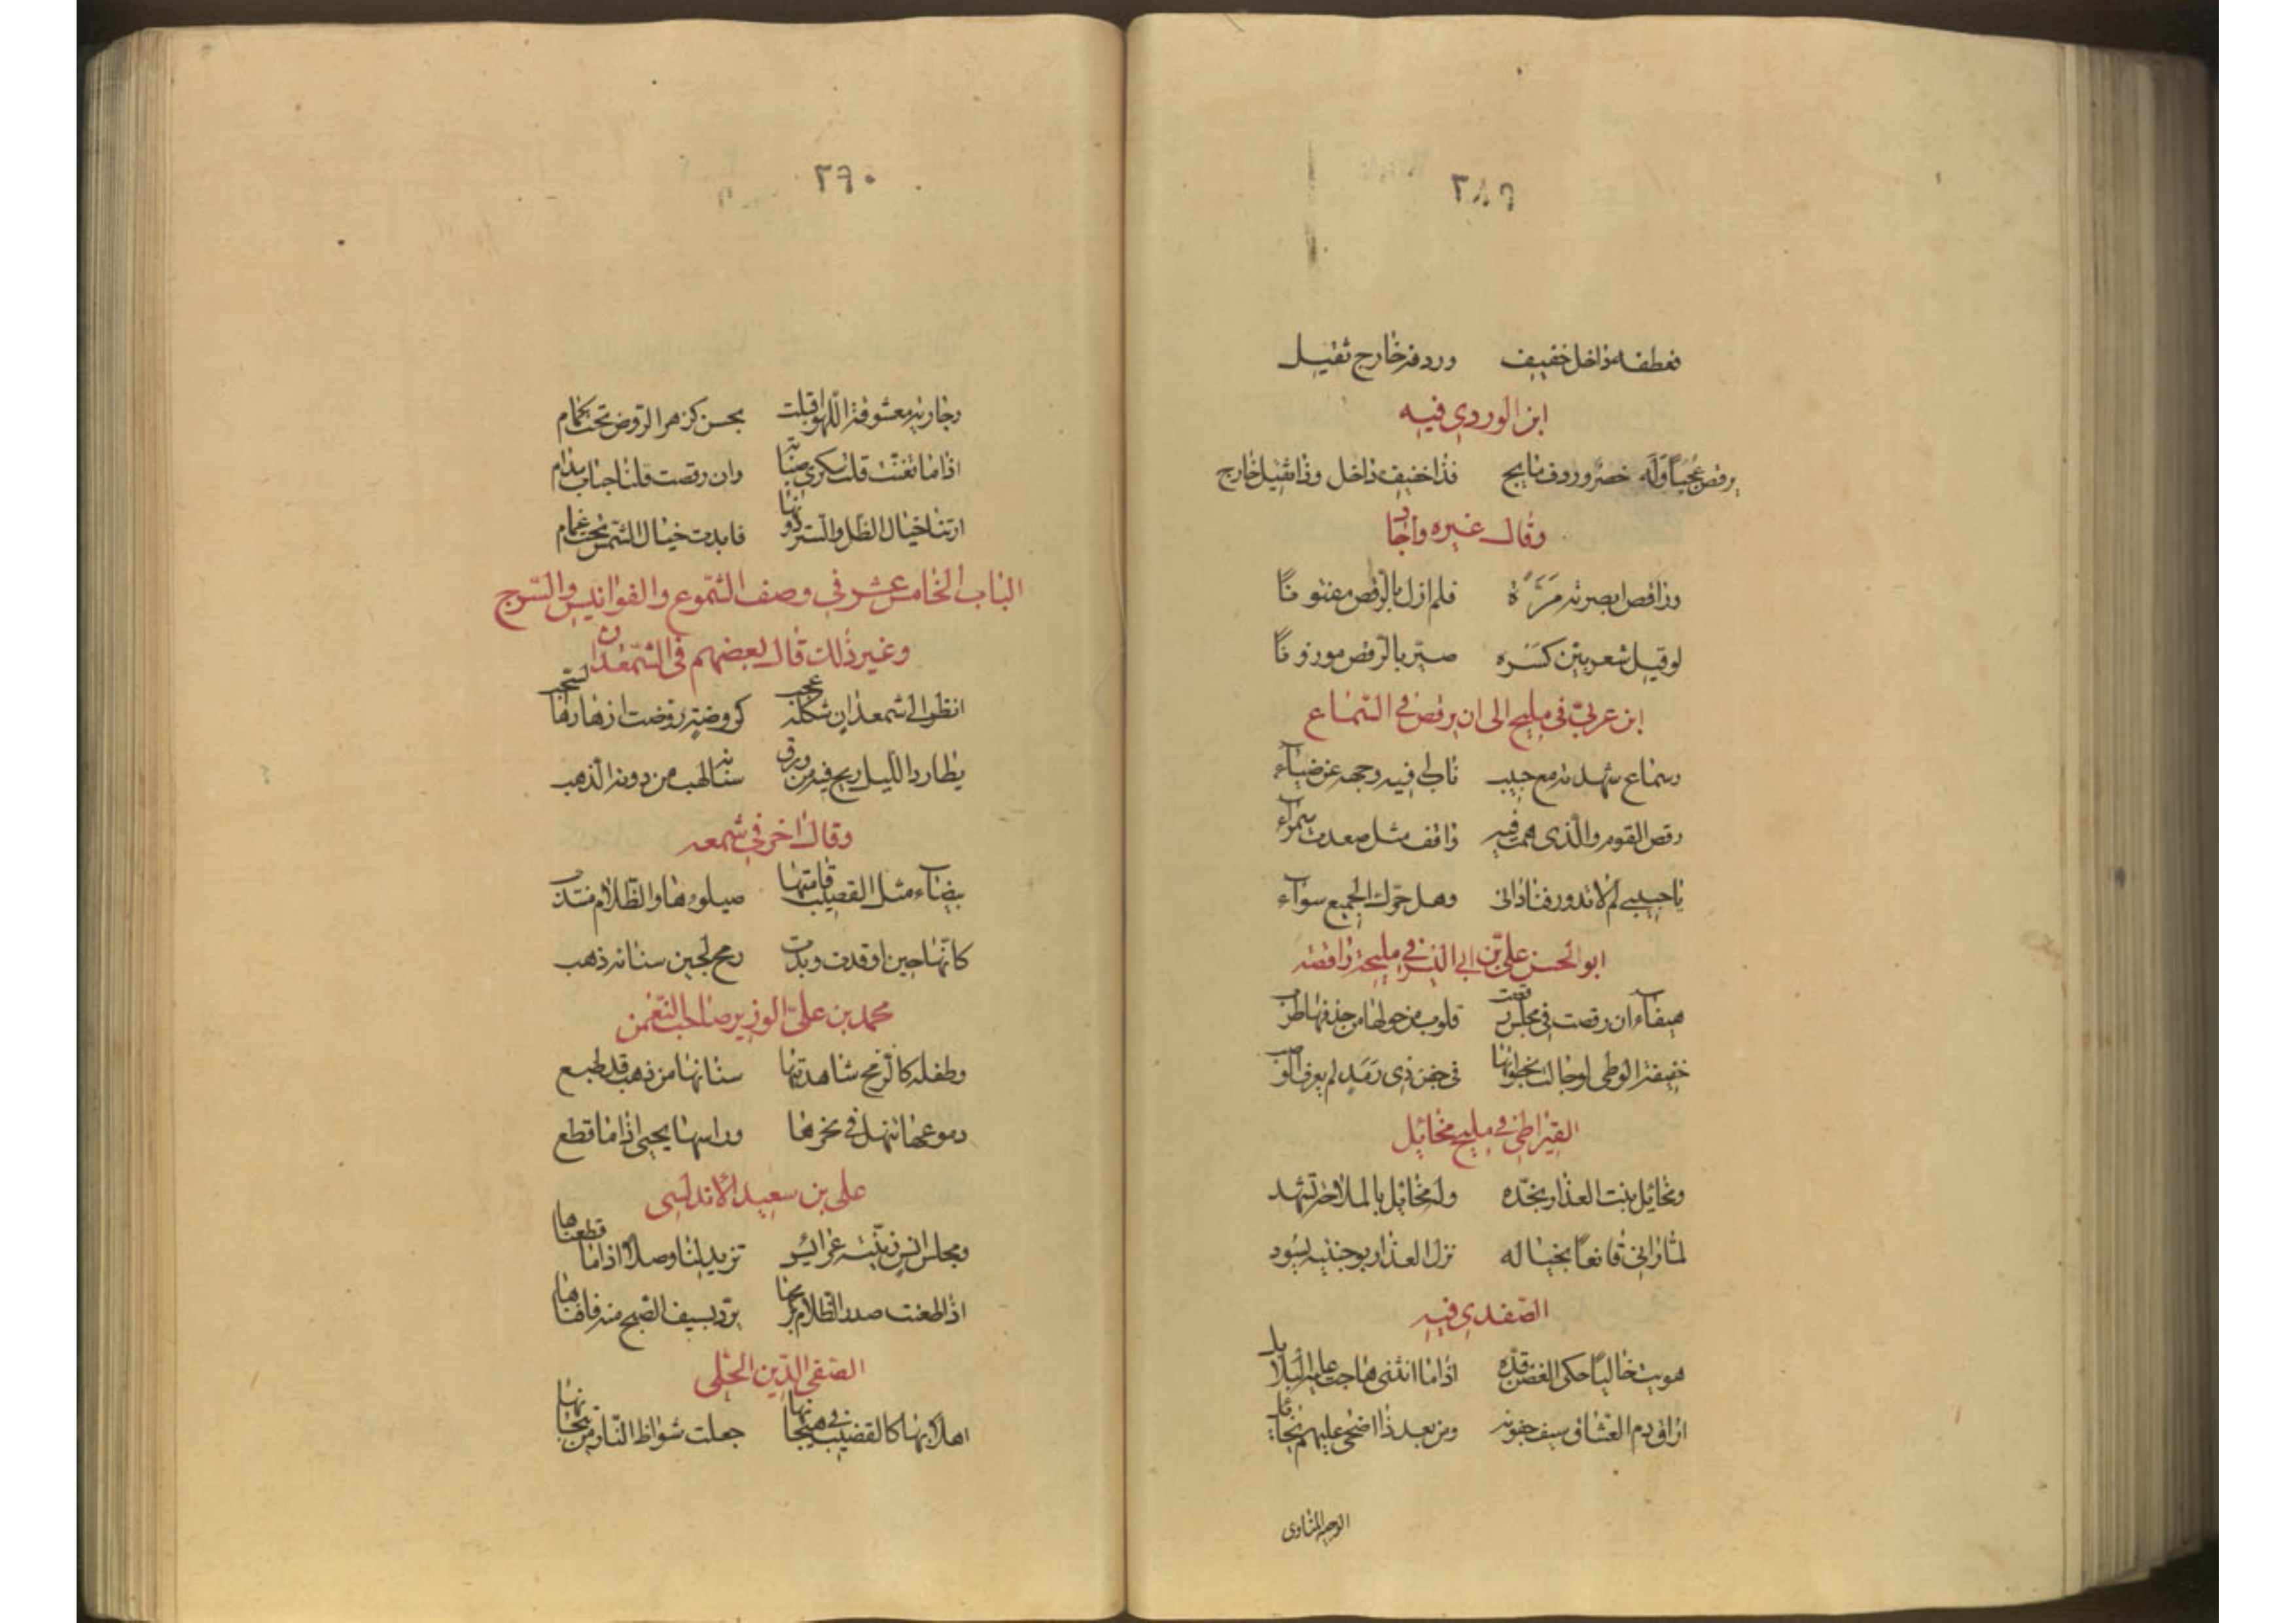 ٢٨٩
فعطفه داخل خفيف وردفه خارج ثقيل
ابن الوردي فيه
يرقص عجباً وله خصر وردف مايج فذا خفيف داخل وذا ثقيل خارج
وقال غيره واجاد
وراقص ابصرته مَرَّةً فلم ازل بالرّقص مفتوناً
لو قيل شعر بيّن كسره صيّر بالرّقص موزوناً
ابن عربيّ في مليح الى ان يرقص في السّماع
وسماع شهدته مع حبيب وجهه عن ضياء
رقص القوم والّذى همت فيه واقف مثل صعدت سمراء
يا حبيبي لم لا تدور فناداني وهل حرّك الجميع سواء
ابو الحسن عليّ بن ابي البشر في مليحة راقصة
هيفاء ان رقصت في مجلس رقصت قلوب من حولها من حذقها طرب
خفيفة الوطئ لو جالت بخطوتها في جفن ذي رَمَدٍ لم يعرف الوصب
القيراطي في مليح مخايل
ومخايل بنت العذار بخدّه وله مخايل بالملاحة تشهد
لمّا رانى قانعاً بخياله نزل العذار بوجنتيه يسود
الصّفدي فيه
هويت خالياً حكى الغصن قدّه اذا ما انثنى هاجت عليه البلابل
اراق دم العشّاق سيف جفونه ومن بعد ذا اضحى عليهم يخايل
الوجيه المناوى
٢٩٠
وجارية معشوقة اللّهو اقبلت بحسن كزهر الرّوض تحت كمام
اذا ما تغنّت قلت سكرى صبابة وان رقصت قلنا حباب مدام
ارتنا خيال الظّل والسّتر دونها فابدت خيال الشّمس تحت غمام
الباب الخامس عشر في وصف الشّموع والفوانيس والسّرج
وغير ذلك قال بعضهم في الشّمعدان
انظر الى شمعدان شكله عجب كروضة روّضت ازهارها السّحب
يطارد اللّيل ريح فيه من ورق سنانه لهب من دونه الذّهب
وقال اخر في شمعه
بيضاء مثل القضيب قامتها والظّلام
كانّها حين اوقدت وبدت رمح لجين سنانه ذهب
محمد بن عليّ الوزير صاحب
وطفلة كالرّمح شاهدتها سنانها من ذهب قد طبع
دموعها تنهل في نحرها وراسها يحيى اذا ما قطع
على بن سعيد الأندلسى
ومجلس انس زيّنته عرايس تزيد لنا وصلا اذا ما قطعناها
اذا طعنت صدر الظّلام برمحها يرّد بسيف الصّبح منه فافناها
الصّفى الدّين الحلّى
اهلا بها كالقضيب في جعلت شواظ النّار من تيجانها